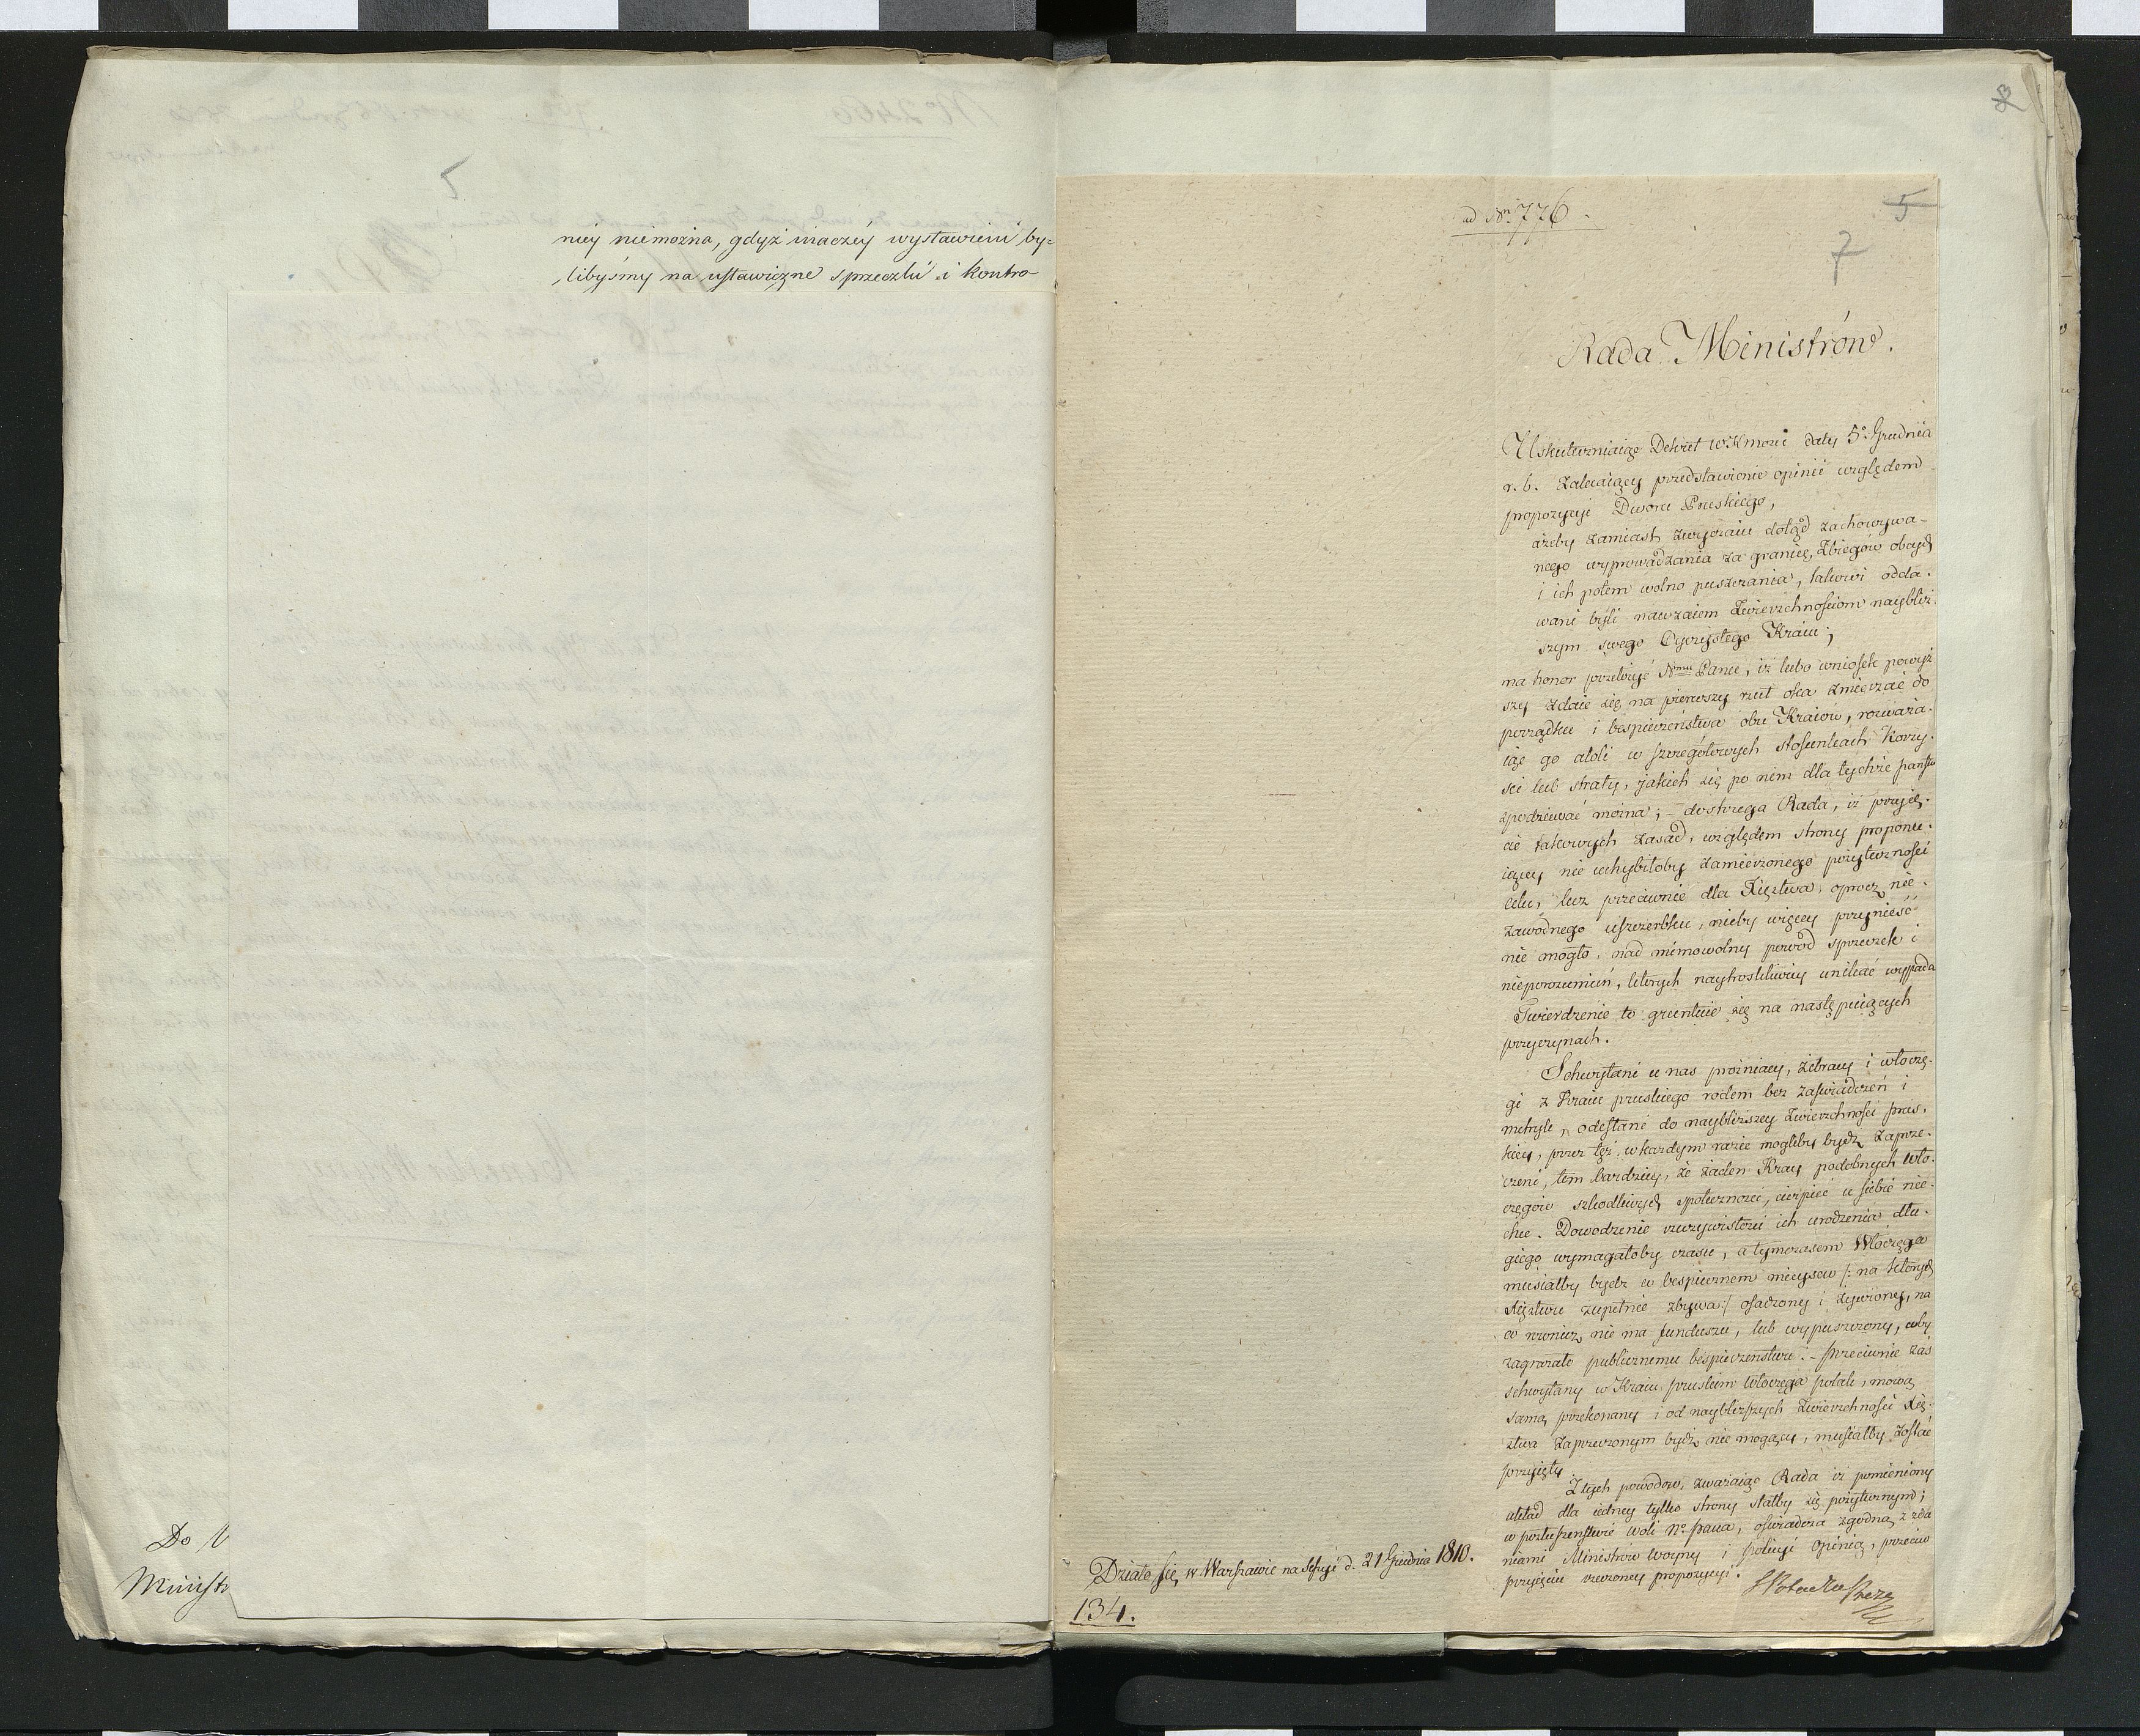 5
niey niemożna, gdyż inaczéy wystawieni by=
libyśmy na ustawiczne sprzeczki i kontro-
Do W
Ministr
2
ad Nrm 776.
5
7
Rada Ministrów.
Uskuteczniaiąc Dekret W. K. Mości daty 5o Grudnia
r. b. zalecaiący przedstawienie opinii względem
propozycyi Dworu Pruskiego,
ażeby zamiast zwyczaiu dotąd zachowywa-
nego wyprowadzania za granicę, Zbiegów obcych
i ich potem wolno puszczania, takowi odda-
wani byli nawzaiem Zwierzchnościom naybliż-
szym swego Oyczystego Kraiu;
ma honor przełożyć Nmu Panu, iż lubo wniosek powyż
szy zdaie się na pierwszy rzut oka zmierzać do
porządku i bespieczeństwa obu Kraiów, rozważa-
iąc go atoli w szczegółowych stosunkach korzy-
ści lub straty, jakich się po nim dla tychże państw
spodziewać można; - dostrzega Rada, iż przyię-
cie takowych zasad, względem strony proponu-
iącey nie uchybiłoby zamierzonego pożyteczności
celu, lecz przeciwnie dla Xięztwa, oprocz nie-
zawodnego uszczerbku, nicby więcey przynieść
nie mogło, nad mimowolny powód sprzeczek i
nieporozumień, których naytroskliwiey unikać wypada
Twierdzenie to gruntuie się na następuiących
przyczynach.
Schwytani u nas próżniacy, żebracy i włoczę-
gi z Kraiu pruskiego rodem bez zaświadczeń i
metryk, odesłane do naybliższey Zwierzchności prus-
kiey, przez tęż, w kazdym razie mogliby bydź zaprze-
czeni, tem bardziey, że żaden Kray podobnych Wło-
częgów szkodliwych społeczności, cierpieć u siebie nie-
chce. Dowodzenie rzeczywistości ich urodzenia dłu-
giego wymagałoby czasu, a tymczasem Włoczęga
musiałby bydz w bespiecznem mieyscu /: na których
Xięztwu zupełnie zbywa :/ osadzony i żywiony, na
co rownież nie ma funduszu, lub wypuszczony, coby
zagrażało publicznemu bespieczenstwu. - Przeciwnie zaś
schwytany w Kraiu pruskim Włoczęga polak, mową
samą przekonany i od naybliższych Zwierzchności Xię-
ztwa zaprzeczonym bydź nie mogący, musiałby zostać
przyięty
Z tych powodow, zważaiąc Rada iż pomieniony
układ dla iedney tylko strony stałby się pożytecznym;
w posłuszeństwie woli No Pana, oświadcza zgodną z zda
niami Ministrów Woyny i Policyi opinią, przeciw
przyięciu rzeczoney propozycyi.
Działo się w Warszawie na Sessyi d. 21 Grudnia 1810.
S Potocki Prezes
134.